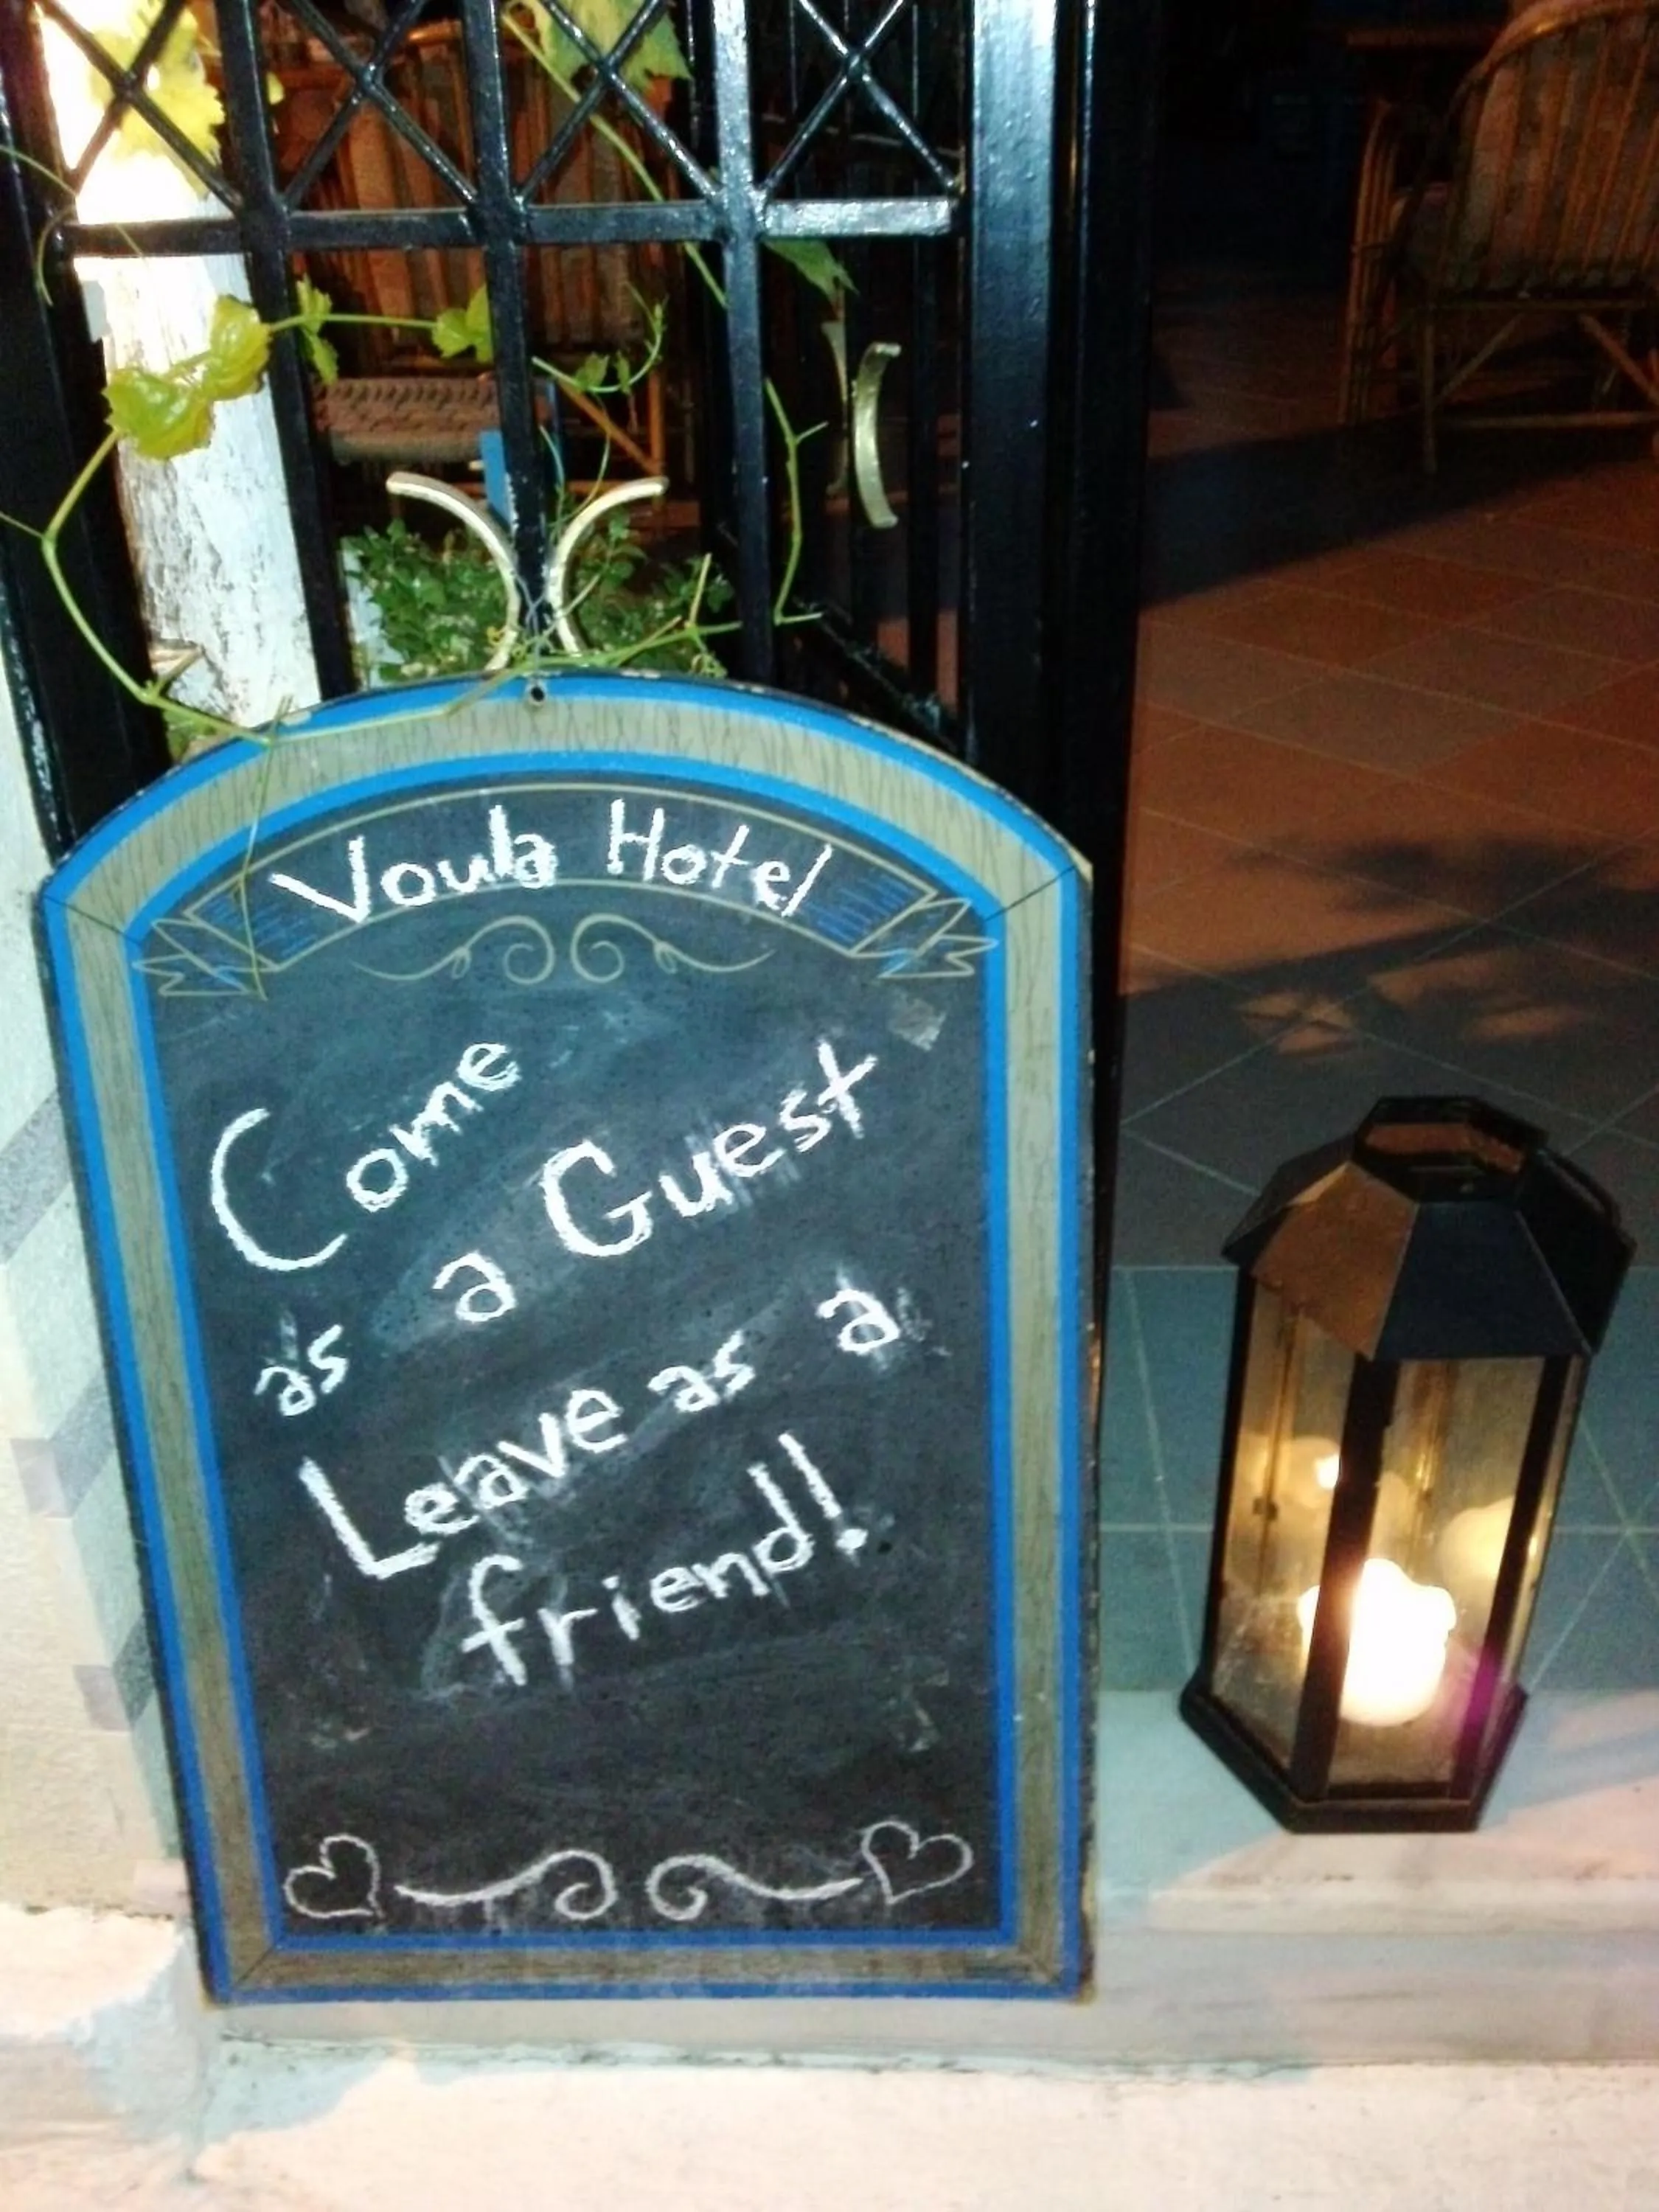 Voula Hotel
Come
as a Guest
Leave as a
friend!